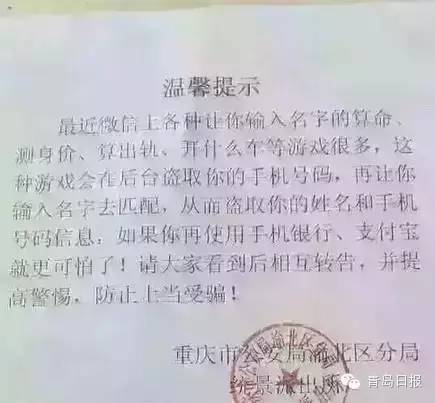 温馨提示
最近微信上各种让你输入名字的算命、
测身价、算出轨、开什么车等游戏很多，这
种游戏会在后台盗取你的手机号码，再让你
输入名字去匹配，从而盗取你的姓名和手机
号码信息，如果你再使用手机银行、支付宝
就更可怕了！请大家看到后相互转告，并提
高警惕，防止上当受骗！
重庆市公安局渝北区分局
景派出所
青岛日报